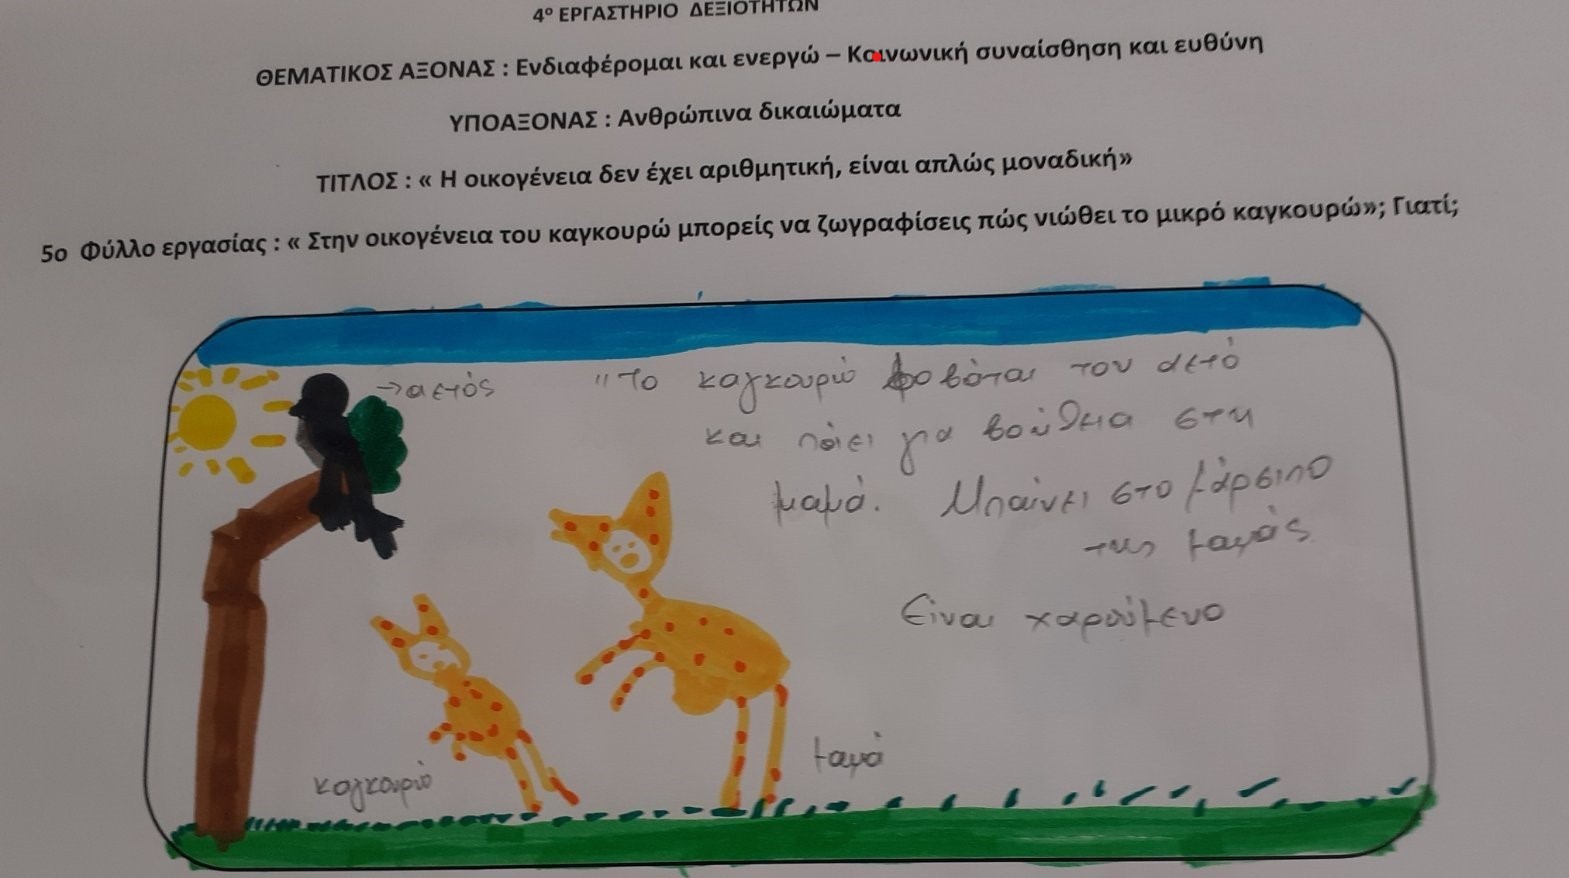 4ο ΕΡΓΑΣΤΗΡΙΟ ΔΕΞΙΟΤΗΤΩΝ
ΘΕΜΑΤΙΚΟΣ ΑΞΟΝΑΣ : Ενδιαφέρομαι και ενεργώ – Κοινωνική συναίσθηση και ευθύνη
ΥΠΟΑΞΟΝΑΣ : Ανθρώπινα δικαιώματα
ΤΙΤΛΟΣ : « Η οικογένεια δεν έχει αριθμητική, είναι απλώς μοναδική»
5ο Φύλλο εργασίας : « Στην οικογένεια του καγκουρώ μπορείς να ζωγραφίσεις πώς νιώθει το μικρό καγκουρώ»; Γιατί;
→αετός
"Το καγκουρώ φοβάται τον αετό
και πάει για βοήθεια στη
μαμά. Μπαίνει στο μάρσιπο
της μαμάς
Είναι χαρούμενο
καγκουρώ
μαμά